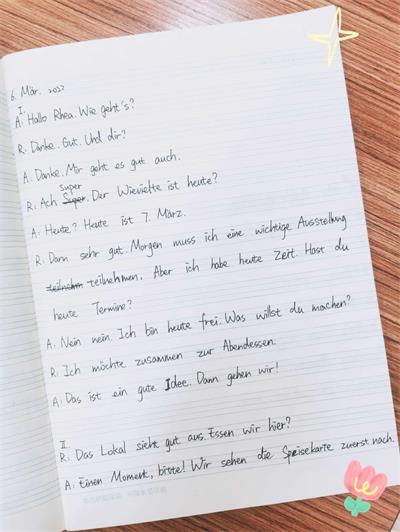 6. Mär. 2022
I.
A: Hallo Rhea. Wie geht's?
R: Danke. Gut. Und dir?
A: Danke. Mir geht es gut auch.
R: Ach super. Der Wievielte ist heute?
A: Heute? Heute ist 7. März.
R: Dann sehr gut. Morgen muss ich eine wichtige Ausstellung
teilnehmen. Aber ich habe heute Zeit. Hast du
heute Termine?
A: Nein nein. Ich bin heute frei. Was willst du machen?
R: Ich möchte zusammen zur Abendessen.
A: Das ist ein gute Idee. Dann gehen wir!
II.
R: Das Lokal sieht gut aus. Essen wir hier?
A: Einen Moment, bitte! Wir sehen die Speisekarte zuerst nach.